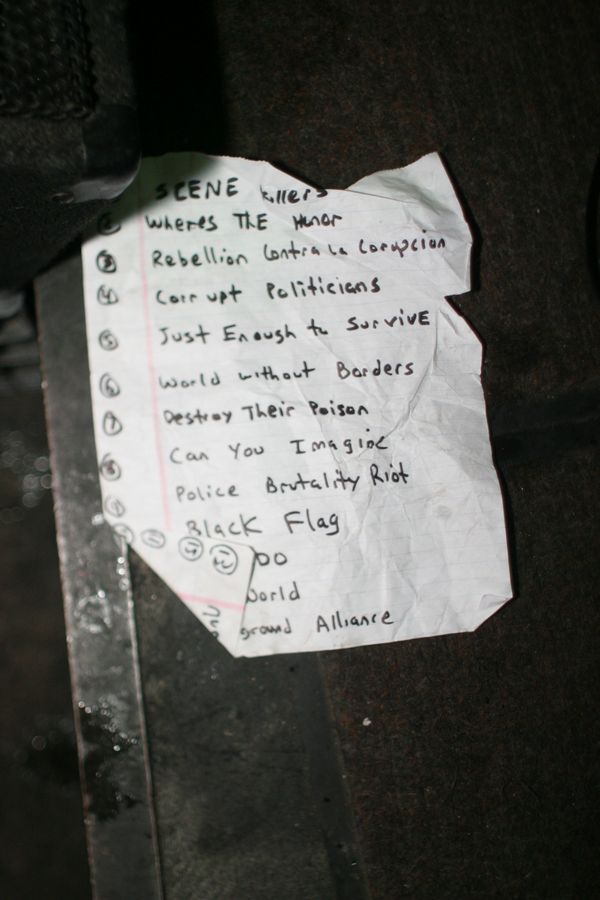 SCENE killers
② Wheres THE Honor
③ Rebellion Contra La Corupcion
④ Corrupt Politicians
⑤ Just Enough to Survive
⑥ World without Borders
⑦ Destroy Their Poison
⑧ Can You Imagine
⑨ Police Brutality Riot
Black Flag
DO
World
ground Alliance